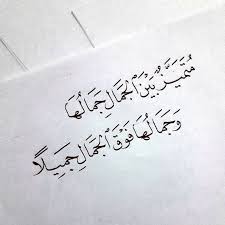 مُتَمَيِّزٌ بَيْنَ الجَمَالِ جَمَالُهَا
وَجَمَالُهَا فَوْقَ الجَمَالِ جَمِيلًا